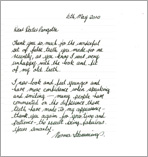 6th May 2010
Dear Doctor
Thank you so much for the wonderful
set of false teeth you made for me
recently, as you know I was very
unhappy with the look and fit
of my old teeth.
I now look and feel younger and
have more confidence when speaking
and smiling - many people have
commented on the difference these
teeth have made to my appearance.
Thank you again for your time and
patience - the result being fabulous
Yours sincerely